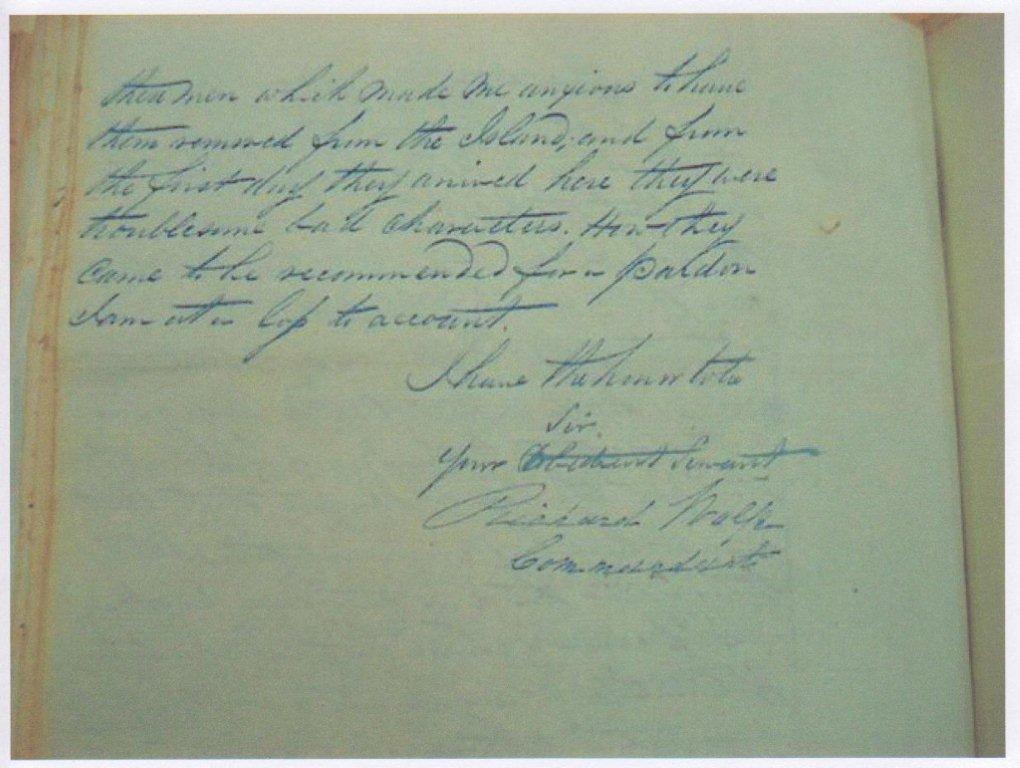 these men which made me anxious to have
them removed from the Island, and from
the first day they arrived here they were
troublesome bad characters. How they
came to be recommended for a Pardon
I am at a loss to account.
I have the honor to be
Sir,
Your Obedient Servant
Richard Wolfe
Commandant